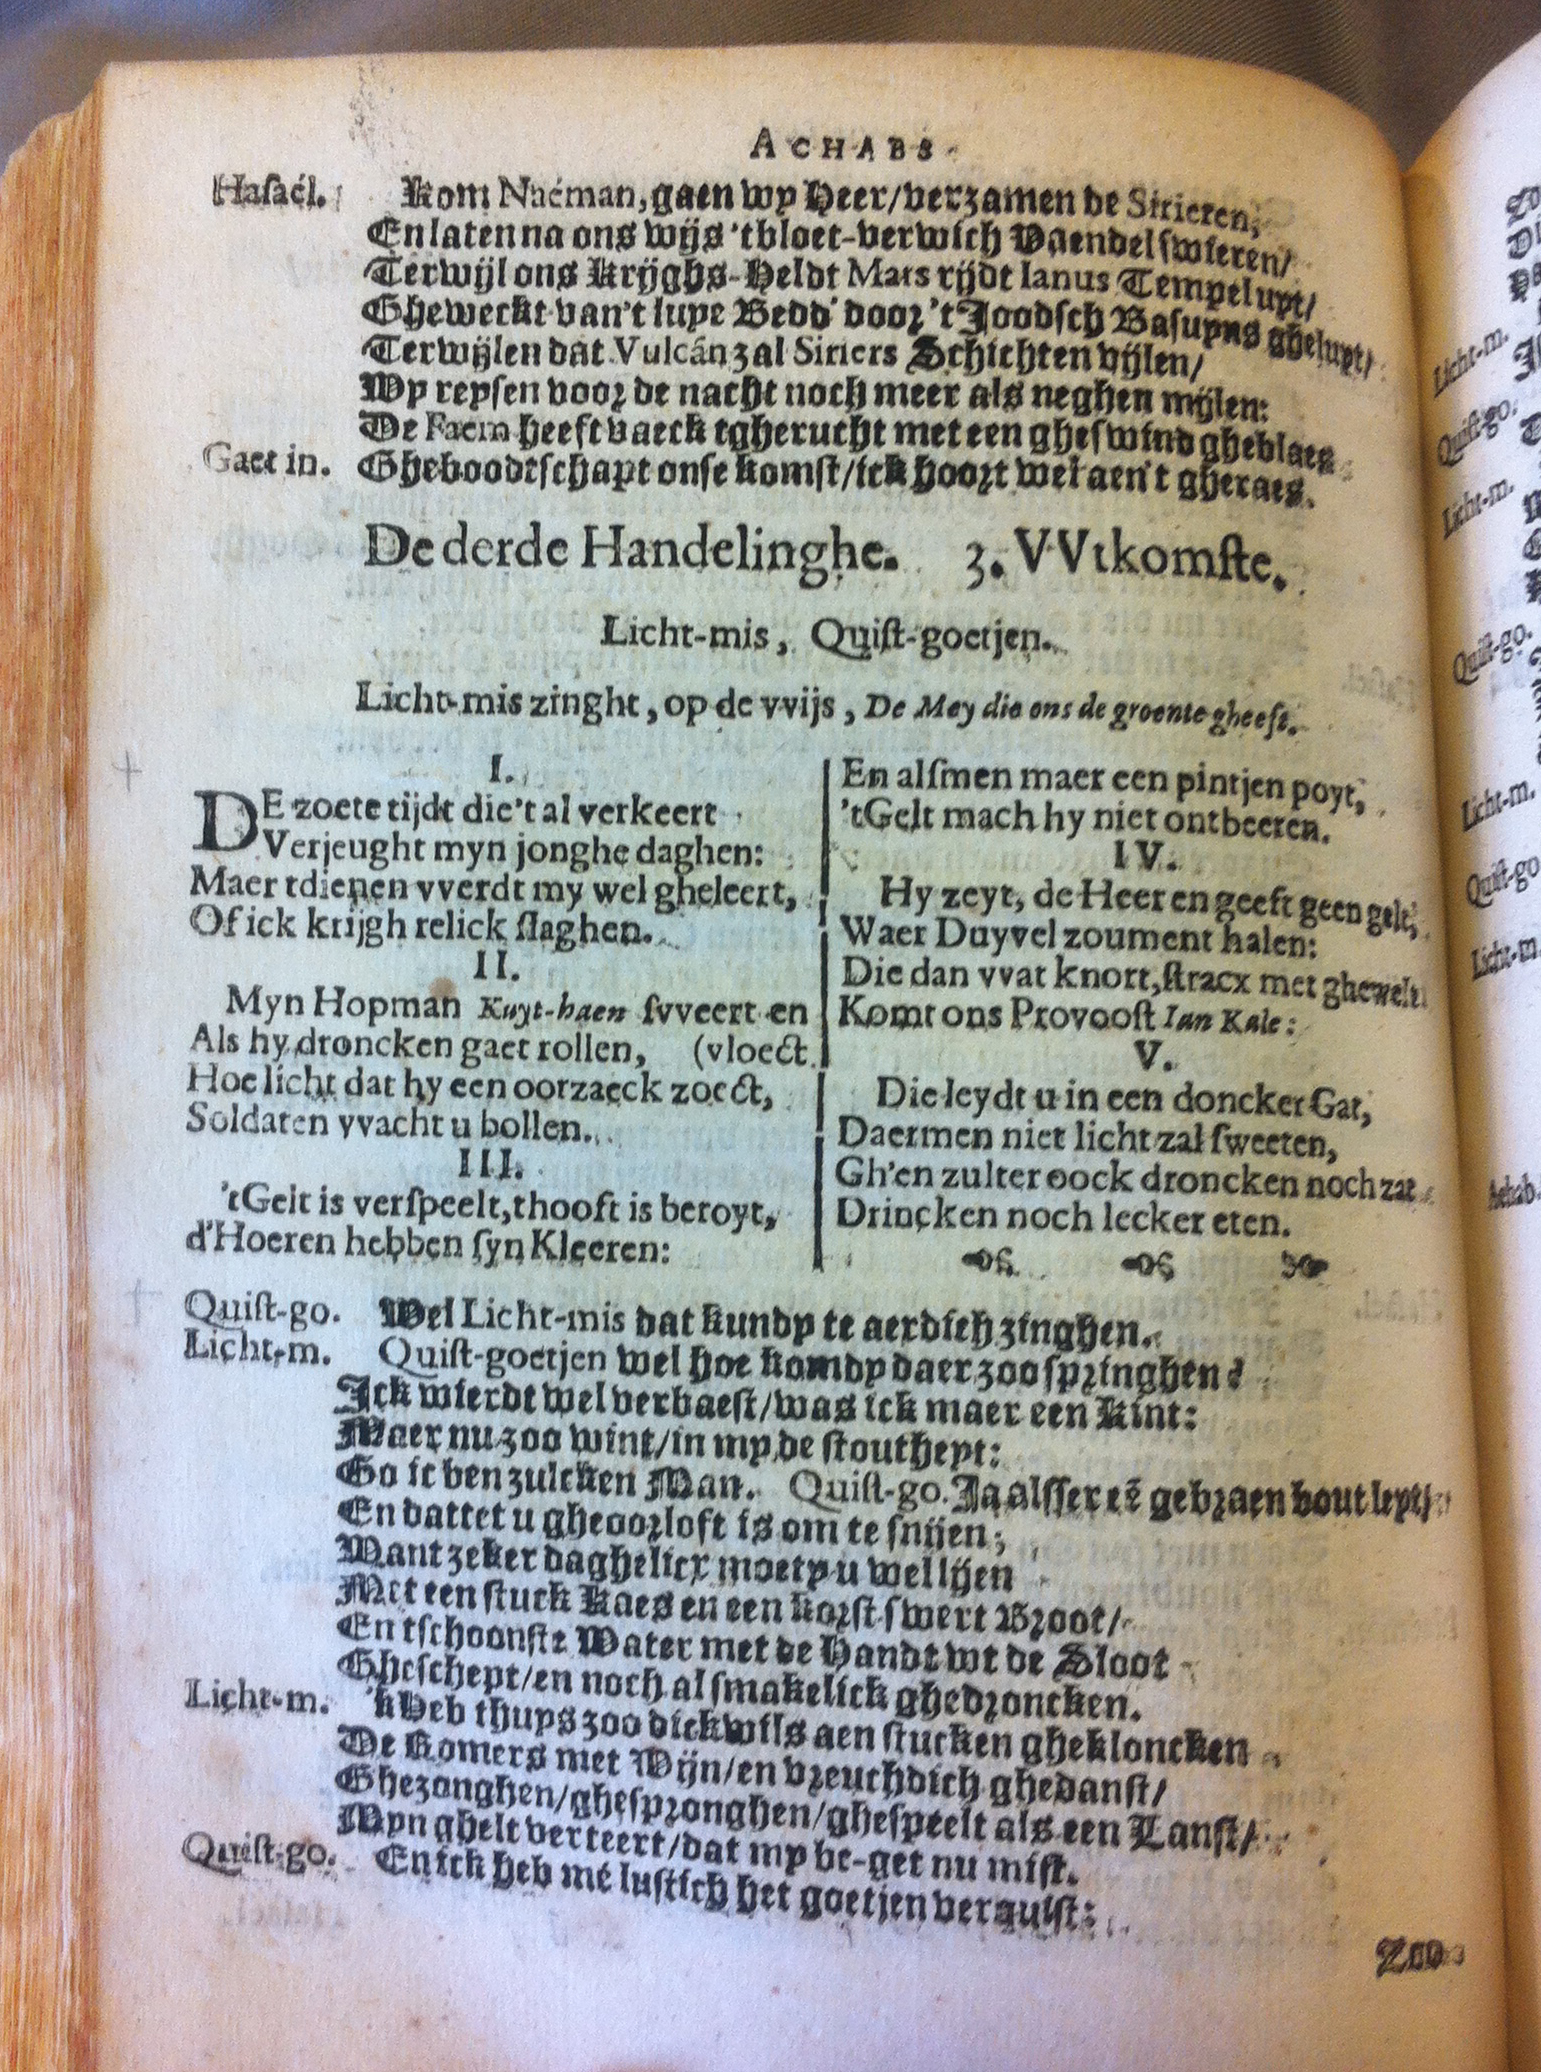 ACHABS
Hasaël. Kom Naëman, gaen wy Heer/verzamen de Sirieren,
En laten na ons wijs 'tbloet-verwich Vaendel swieren/
Terwijl ons Krijghs-Heldt Mars rijdt Ianus Tempel uyt/
Gheweckt van't luye Bedd' door 't Joodsch Basuyns gheluyt/
Terwijlen dat Vulcán zal Siriers Schichten vijlen/
Wy reysen voor de nacht noch meer als neghen mijlen:
De Faem heeft vaeck tgherucht met een gheswind gheblaes
Gaet in. Gheboodtschapt onse komst/ick hoort wel aen't gheraes.
De derde Handelinghe. 3. VVtkomste.
Licht-mis, Quist-goetjen.
Licht-mis zinght, op de vvijs, De Mey die ons de groente gheeft.
I.
DE zoete tijdt die't al verkeert
Verjeught myn jonghe daghen:
Maer tdienen vverdt my wel gheleert,
Of ick krijgh relick slaghen.
II.
Myn Hopman Kuyt-haen svveert en
Als hy droncken gaet rollen, (vloect
Hoe licht dat hy een oorzaeck zoect,
Soldaten vvacht u bollen.
III.
'tGelt is verspeelt, thooft is beroyt,
d'Hoeren hebben syn Kleeren:
En alsmen maer een pintjen poyt,
'tGelt mach hy niet ontbeeren.
IV.
Hy zeyt, de Heeren geeft geen gelt,
Waer Duyvel zoument halen:
Die dan vvat knort, stracx met ghewelt
Komt ons Provoost Ian Kale:
V.
Die leydt u in een doncker Gat,
Daermen niet licht zal sweeten,
Gh'en zulter oock droncken noch zat
Drincken noch lecker eten.
Quist-go. Wel Licht-mis dat kundy te aerdich zinghen.
Licht-m. Quist-goetjen wel hoe komdy daer zoo springhen?
Ick wierdt wel verbaest/was ick maer een Kint:
Maer nu zoo wint/in my de stoutheyt:
Go ic ben zulcken Man. Quist-go. Ja alsser eē gebraen bout leyt/
En dattet u gheoorloft is om te snijen;
Want zeker daghelicx moety u wel lijen
Met een stuck Kaes en een korst swert Broot/
En tschoonste Water met de Handt wt de Sloot
Gheschept/en noch al smakelick ghedroncken.
Licht-m. 'k Heb thuys zoo dickwils aen stucken ghekloncken
De Romers met Wijn/en vreuchdich ghedanst/
Ghezonghen/ghespronghen/ghespeelt als een Lanst/
Myn ghelt verteert/dat my be-get nu mist.
Quist-go. En ick heb mé lustich het goetjen verquist:
Zoo